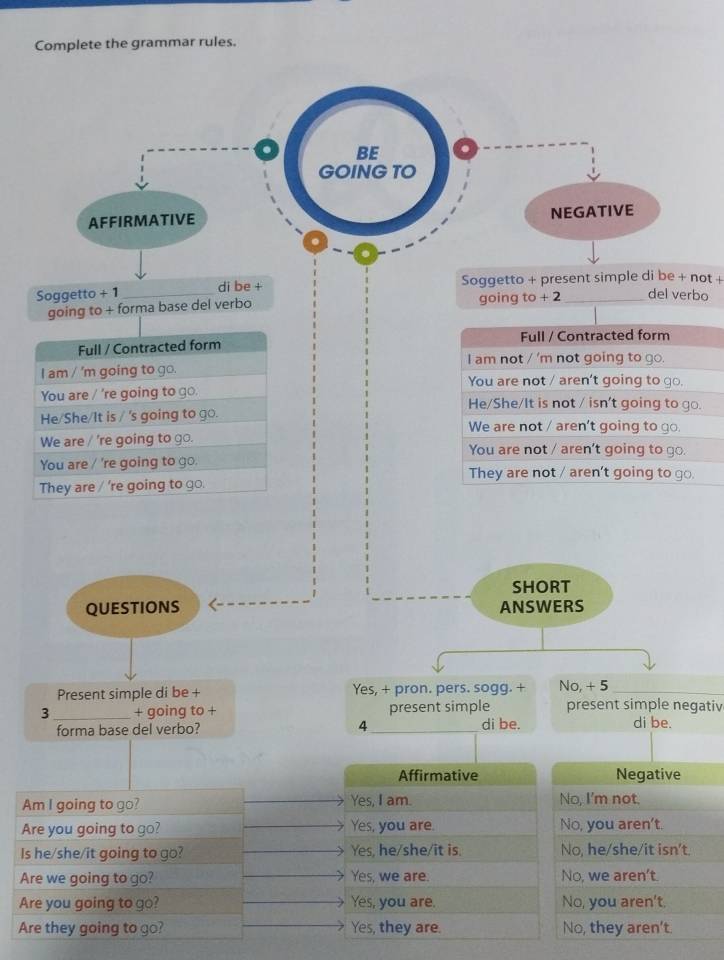 Complete the grammar rules.
BE
GOING TO
AFFIRMATIVE
Soggetto + 1 ____________ di be +
going to + forma base del verbo
Full / Contracted form
I am / 'm going to go.
You are / 're going to go.
He/She/It is / 's going to go.
We are / 're going to go.
You are / 're going to go.
They are / 're going to go.
NEGATIVE
Soggetto + present simple di be + not +
going to + 2 ____________ del verbo
Full / Contracted form
I am not / 'm not going to go.
You are not / aren't going to go.
He/She/It is not / isn't going to go.
We are not / aren't going to go.
You are not / aren't going to go.
They are not / aren't going to go.
QUESTIONS
Present simple di be +
3 ____________ + going to +
forma base del verbo?
Am I going to go?
Are you going to go?
Is he/she/it going to go?
Are we going to go?
Are you going to go?
Are they going to go?
SHORT
ANSWERS
Yes, + pron. pers. sogg. +
present simple
4 ____________ di be.
Affirmative
Yes, I am.
Yes, you are.
Yes, he/she/it is.
Yes, we are.
Yes, you are.
Yes, they are.
No, + 5 ____________
present simple negativ
di be.
Negative
No, I'm not.
No, you aren't.
No, he/she/it isn't.
No, we aren't.
No, you aren't.
No, they aren't.